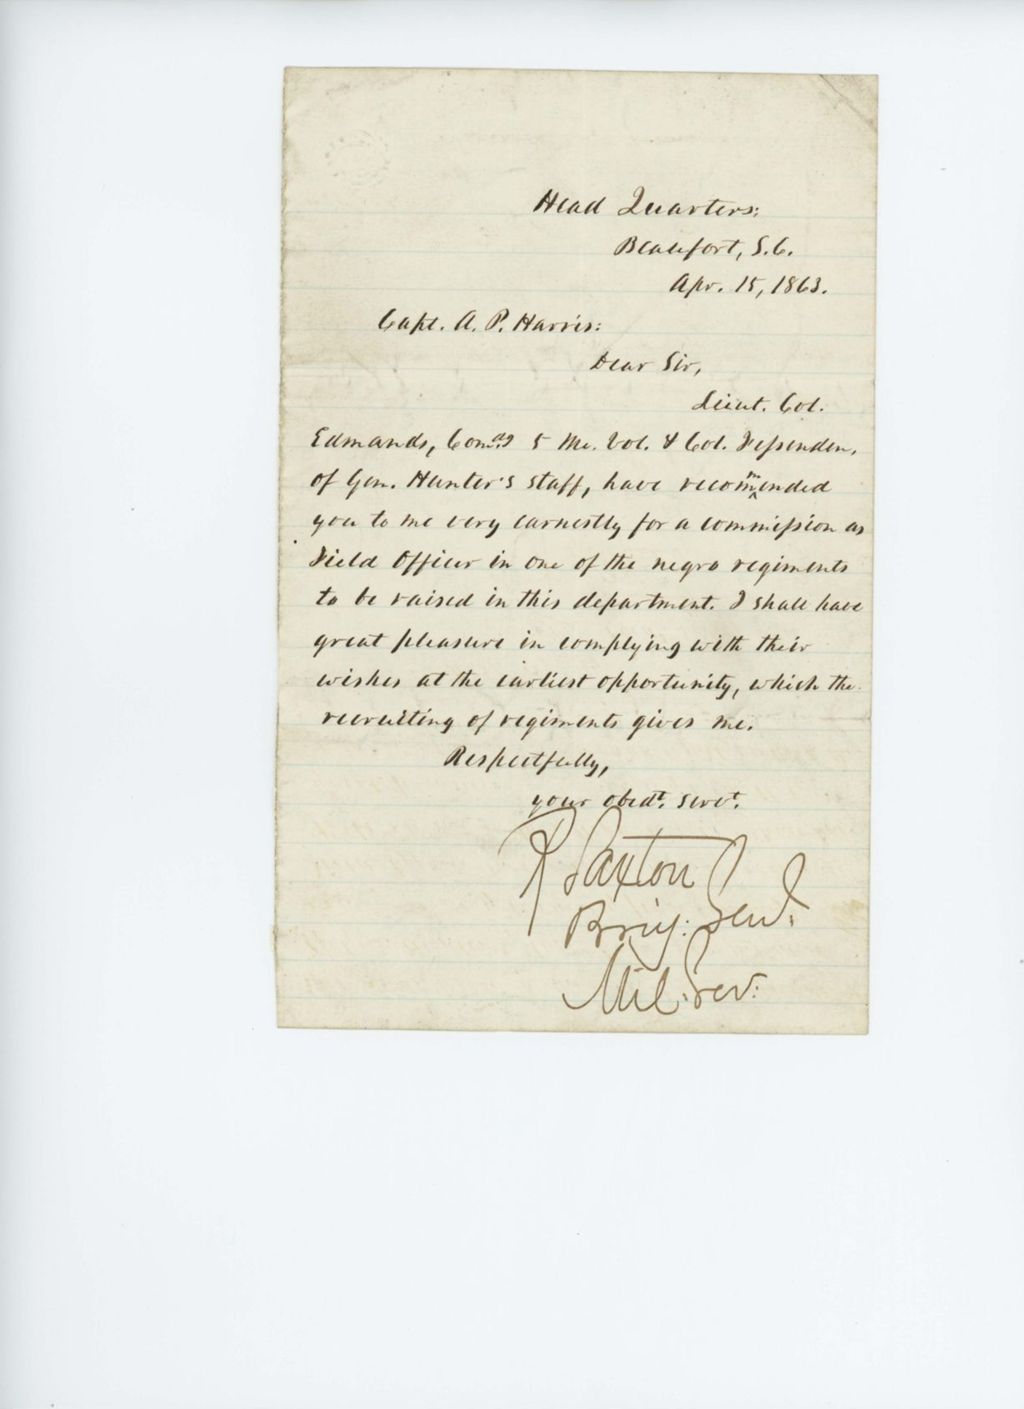 Head Quarters:
Beaufort, S.C.
Apr. 15, 1863.
Capt. A. P. Harris:
Dear Sir,
Lieut. Col.
Edmands, Comdg 5 Me. Vol. & Col. Fessenden,
of Gen. Hunter's staff, have recommended
you to me very earnestly for a commission as
Field Officer in one of the negro regiments
to be raised in this department. I shall have
great pleasure in complying with their
wishes at the earliest opportunity, which the
recruiting of regiments gives me.
Respectfully,
your obedt. servt.
R Saxton
Brig: Genl.
Mil: Gov: